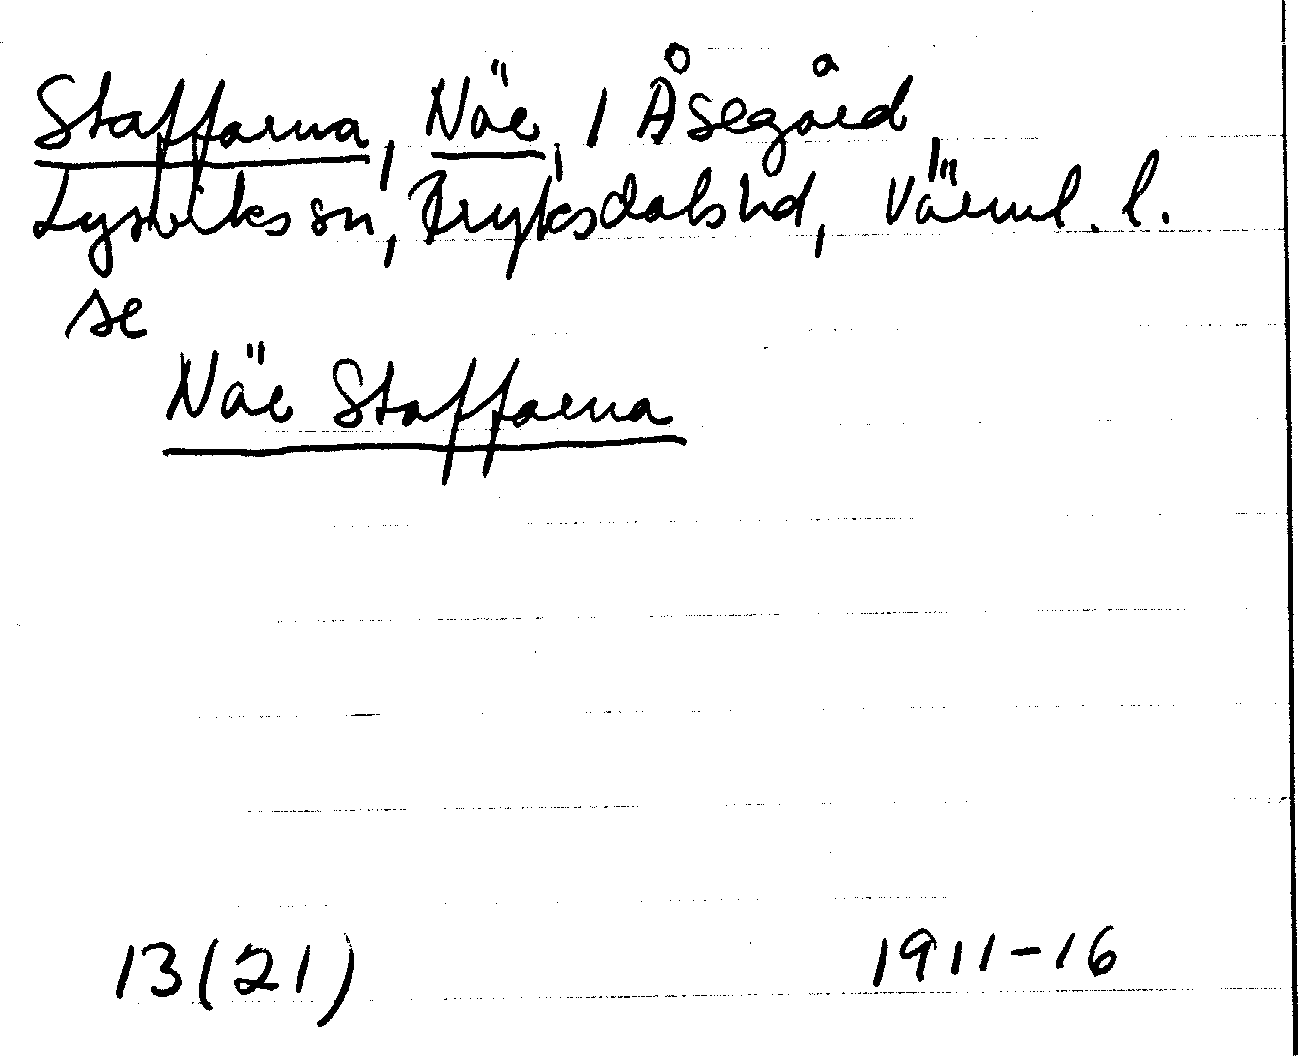 Staffarna, När, / Åsegård,
Lysviks sn, Fryksdals hd, Värml. l.
se
När Staffarna
13(21) 1911-16